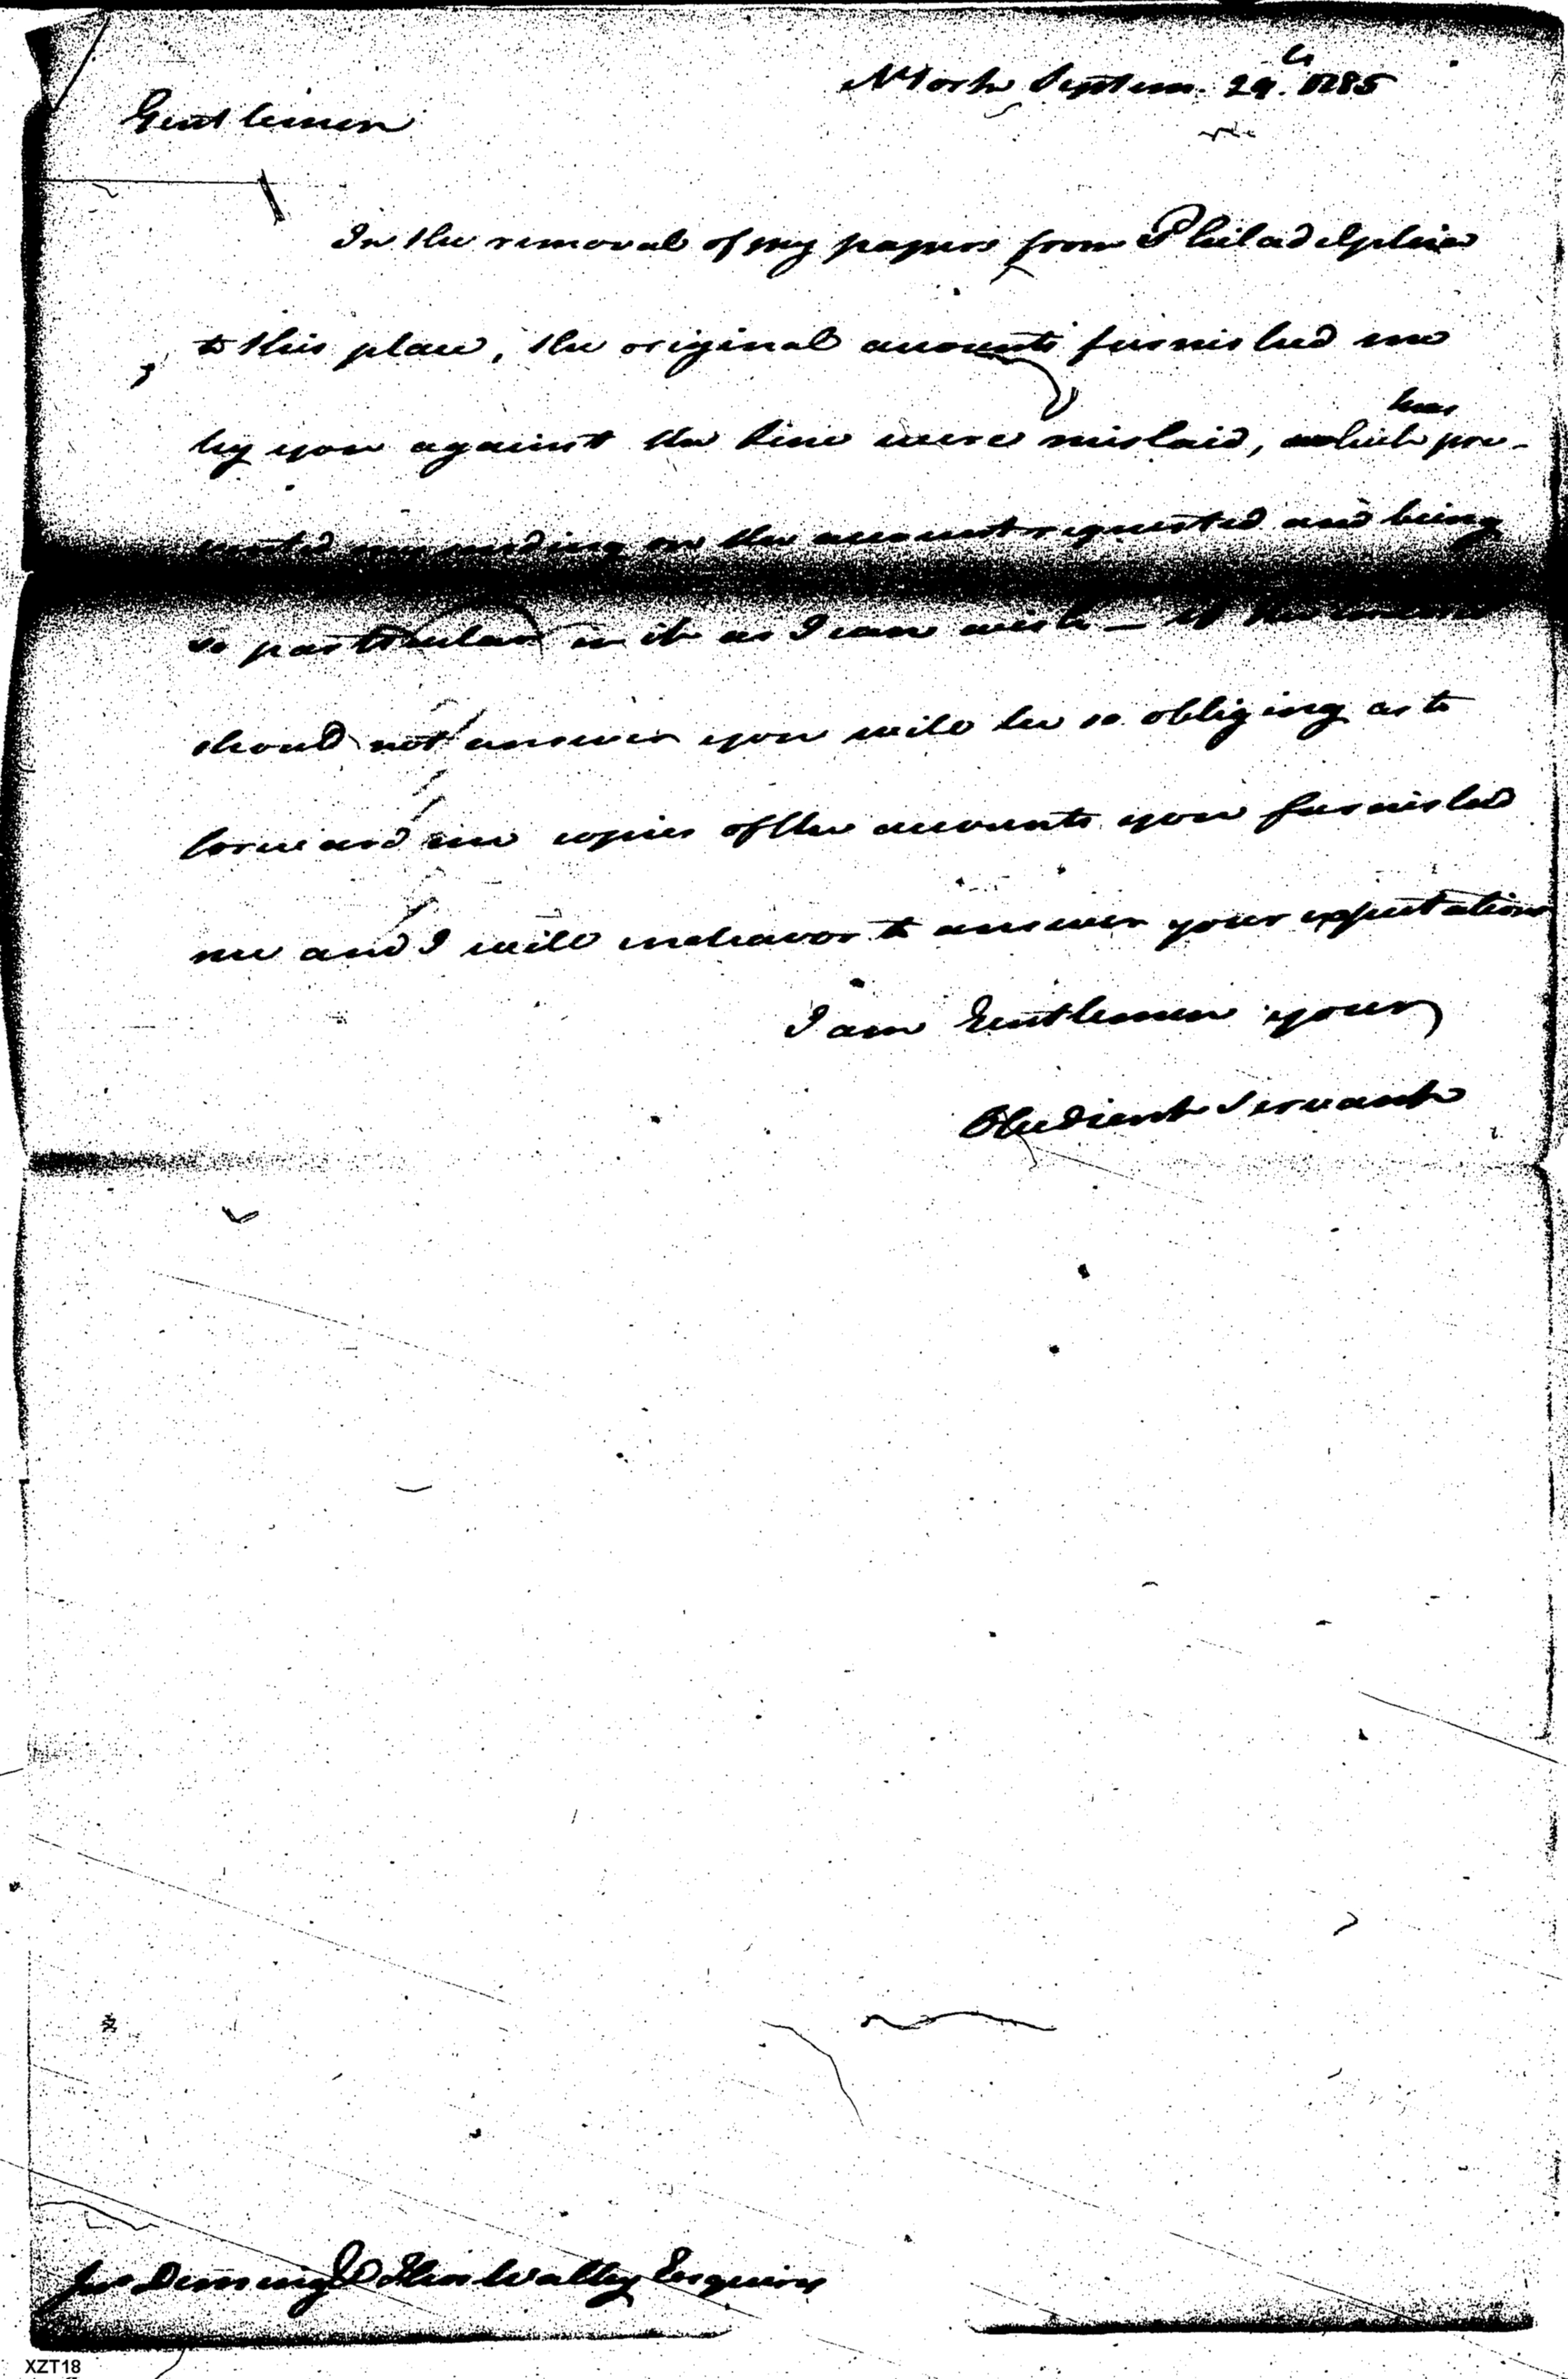 NYork Septem. 29.th 1785
Gentlemen
In the removal of my papers from Philadelphia
to this place, the original accounts furnished me
by you against the line were mislaid, which has pre-
vented my sending on the account requested and being
so particular in it as I can wish — If the
should not answer you will be so obliging as to
forward me copies of the accounts you furnished
me and I will endeavor to answer your expectations
I am Gentlemen your
Obedient Servant
Deming & Thos Walley Esquires
XZT18